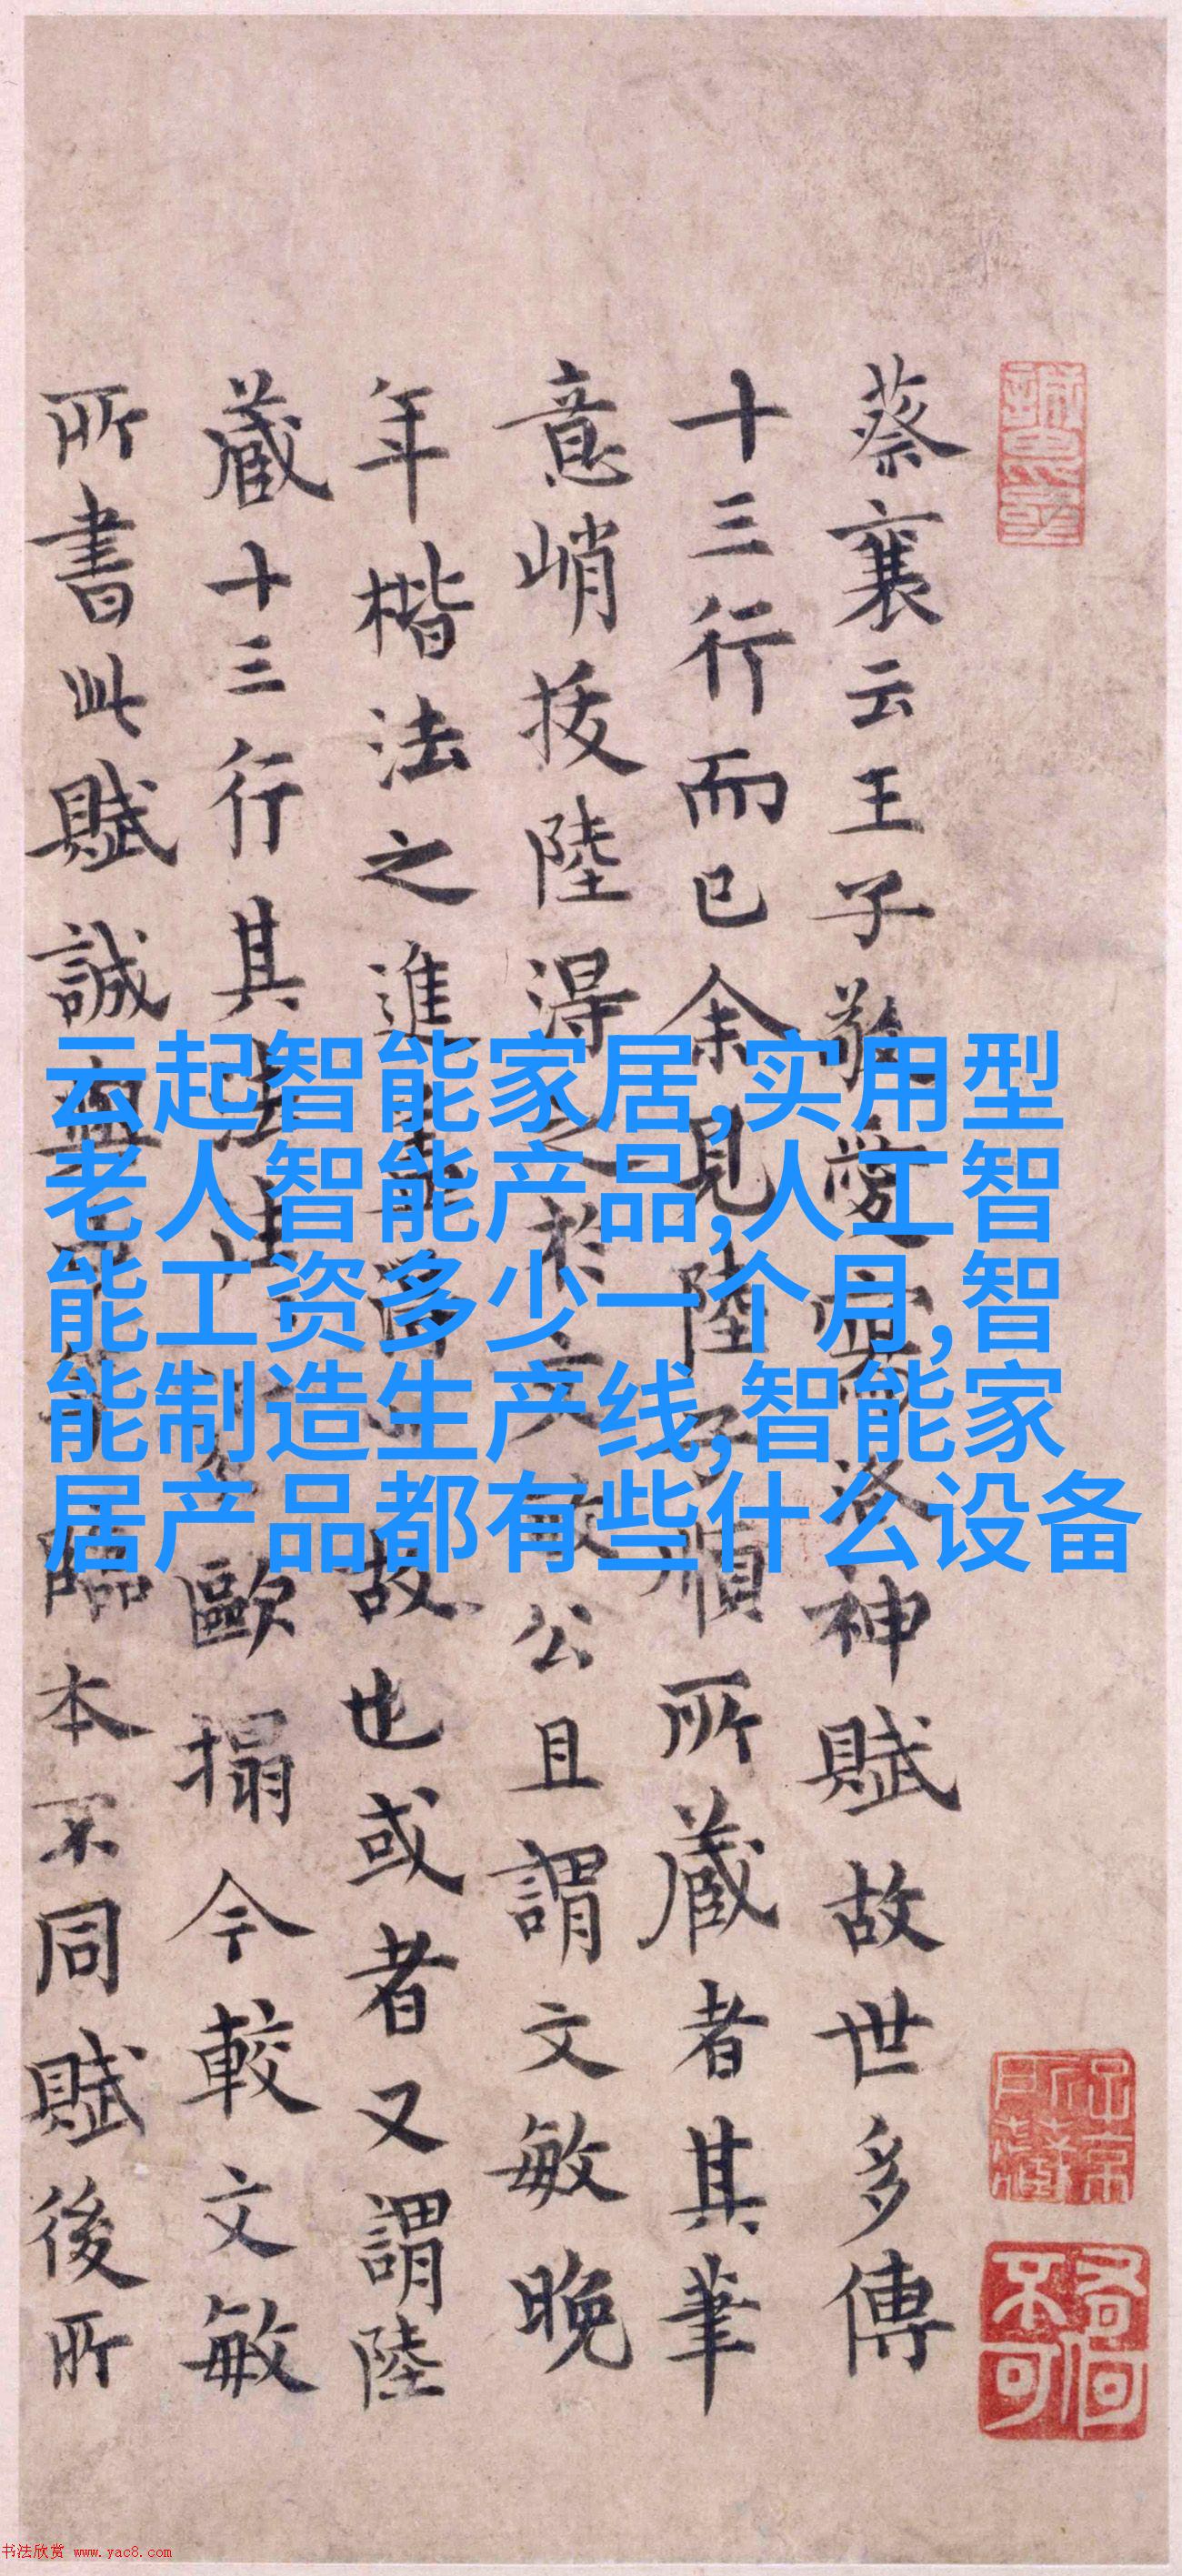 蔡襄云王子敬愛寫洛神賦故世多傳
十三行而已余見陸子順所藏者其筆
意峭拔陸得之於文敏公且謂文敏晚
年楷法之進故也或者又謂陸
藏十三行其法歐搨今較文敏
所書此賦誠臨本不同賦後所
云起智能家居,实用型
老人智能产品,人工智
能工资多少一个月,智
能制造生产线,智能家
居产品都有些什么设备
书法欣赏 www.yac8.com